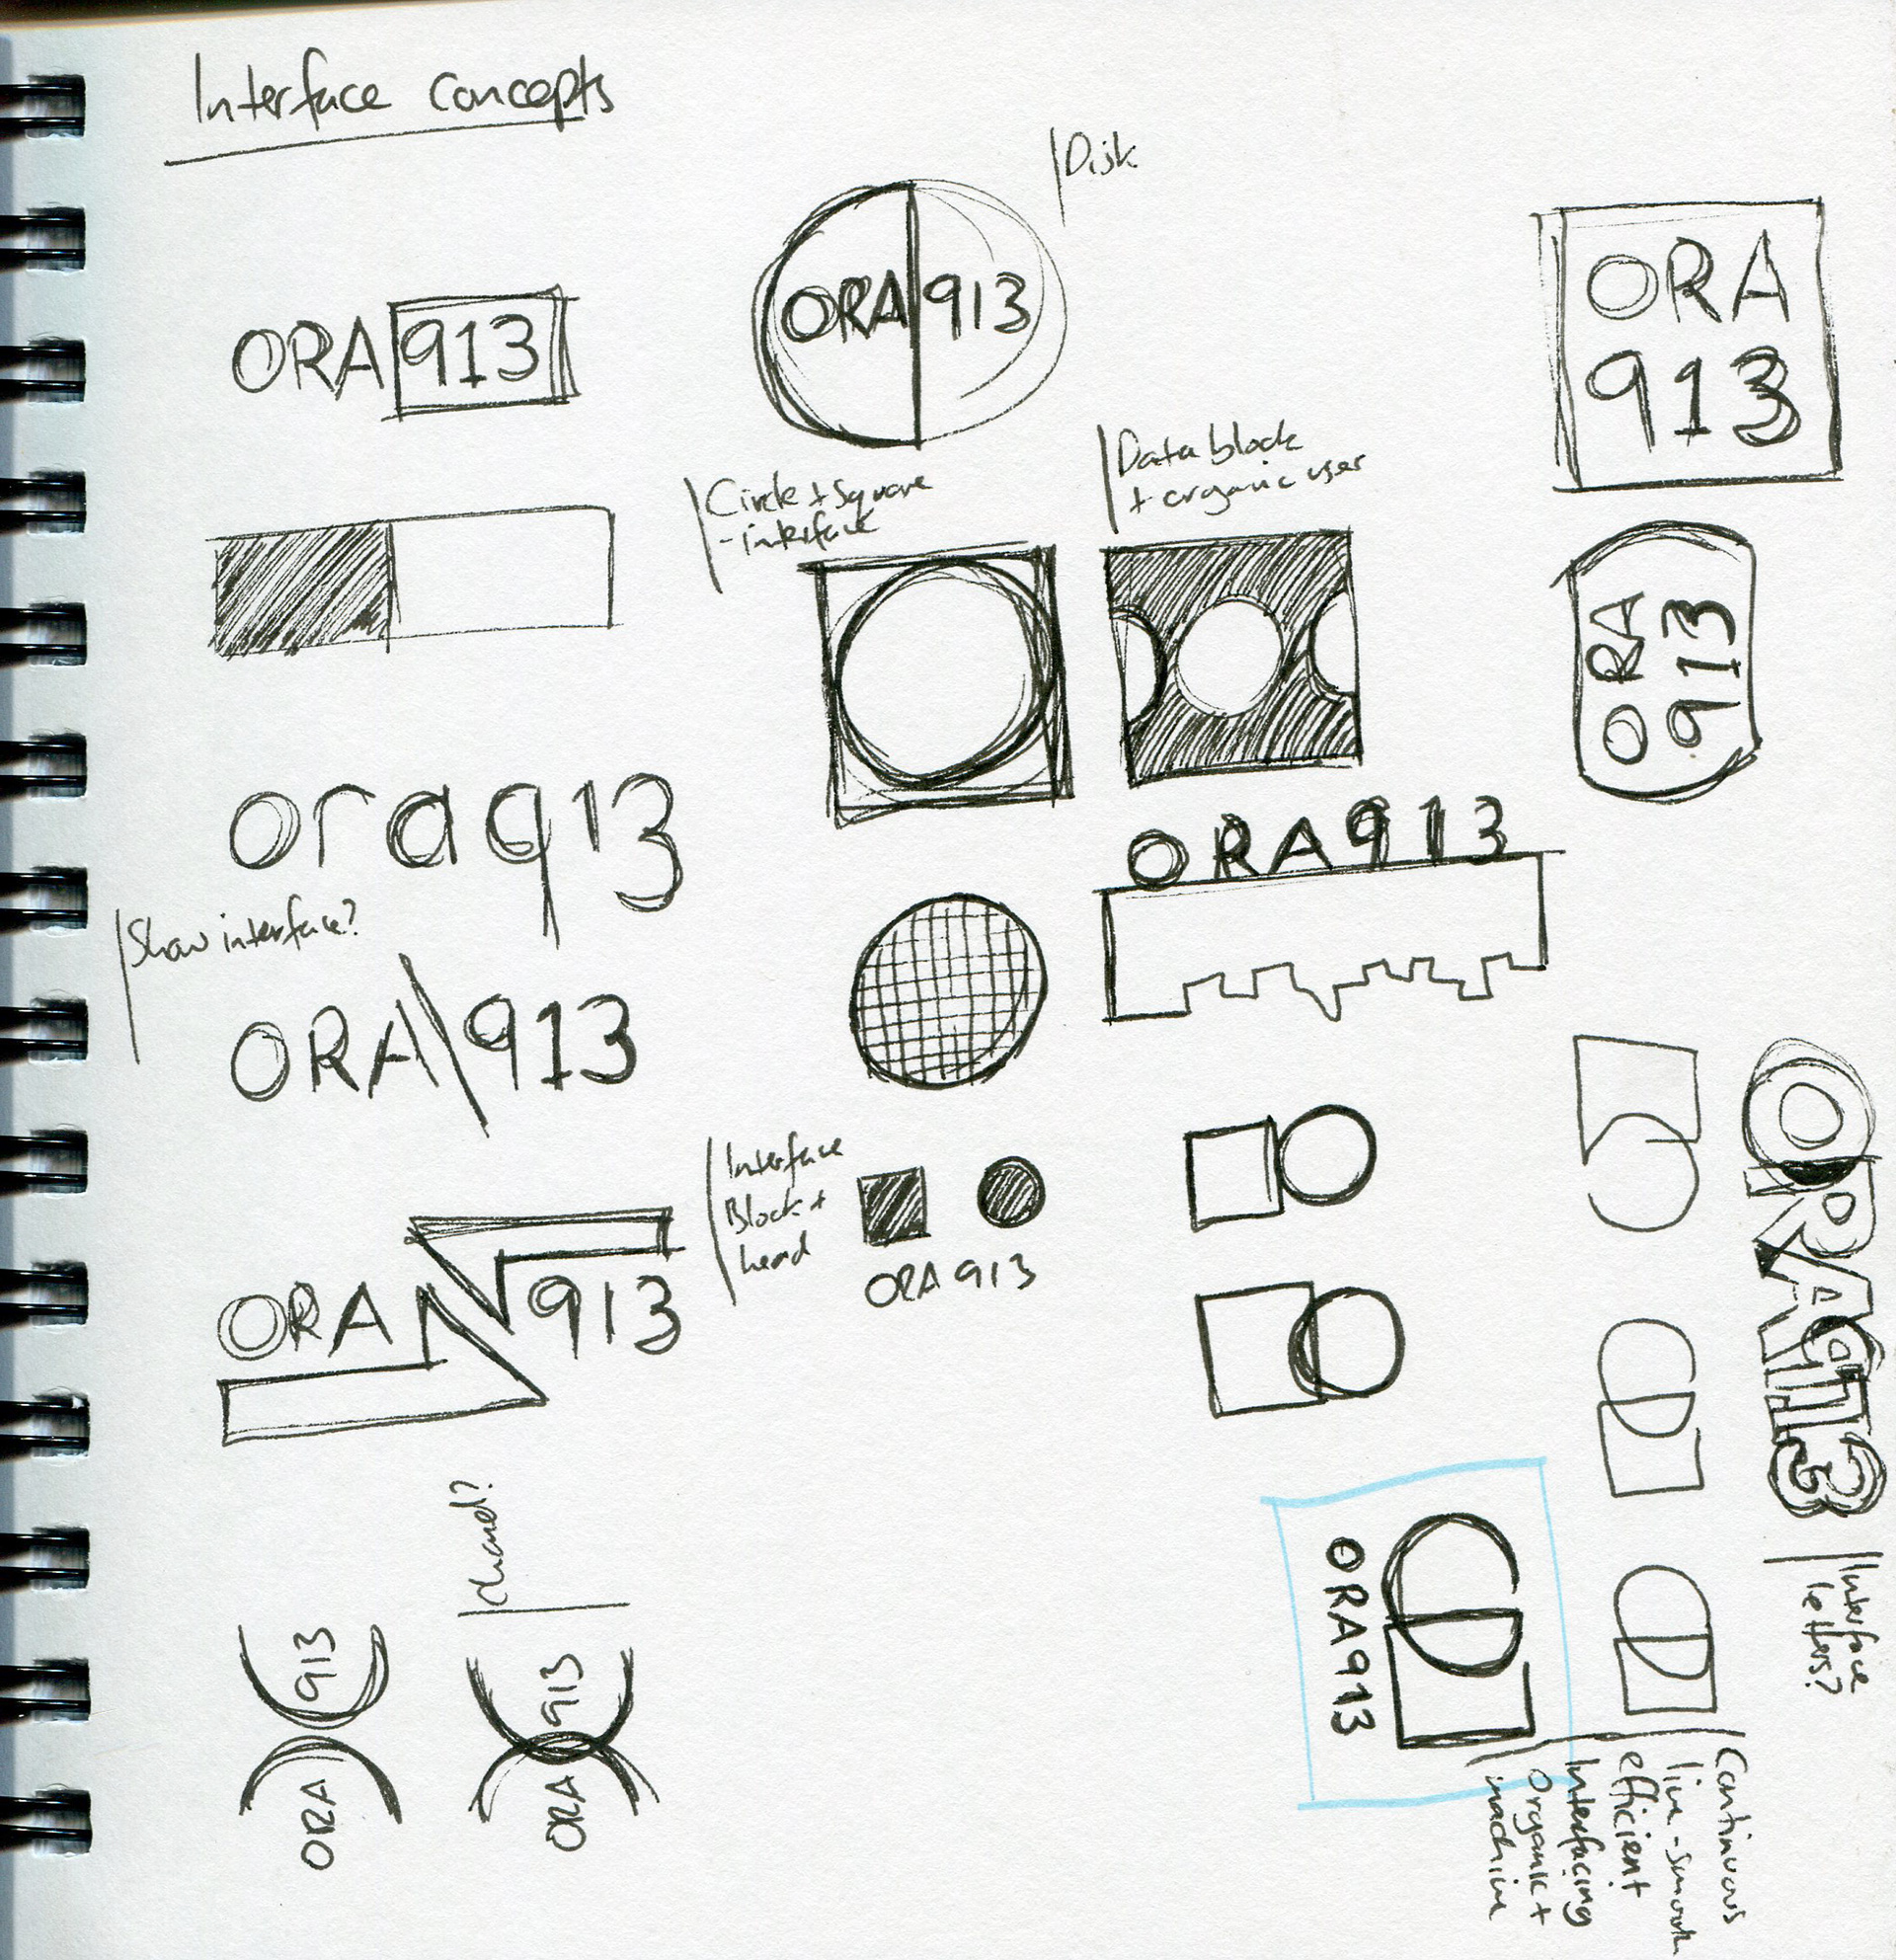 Interface concepts
Disk
ORA 913
ORA 913
ORA
913
Circle + square
- interface
Data block
+ organic user
ORA
913
ora913
ORA913
Show interface?
ORA\913
Interface
Block +
head
ORA 913
ORA 913
ORA913
Interface
letters?
ORA913
Continuous
line - smooth
efficient
Interfacing
organic +
machine
913
ORA
913
ORA